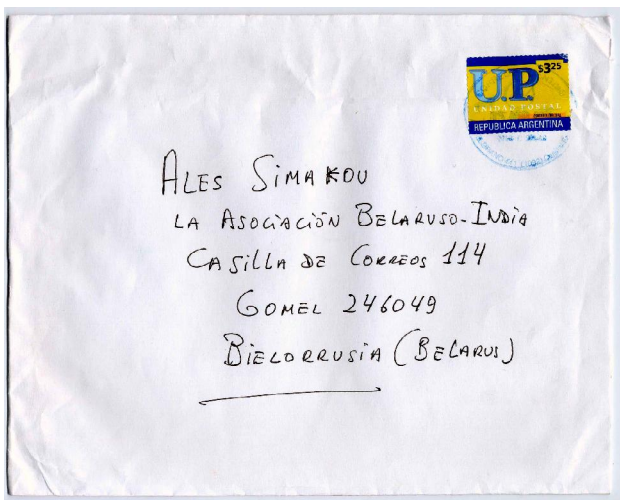 $3.25
U.P.
UNIDAD POSTAL
REPUBLICA ARGENTINA
ALES SIMAKOU
LA ASOCIACIÓN BELARUSO-INDIA
CASILLA DE CORREOS 114
GOMEL 246049
BIELORRUSIA (BELARUS)